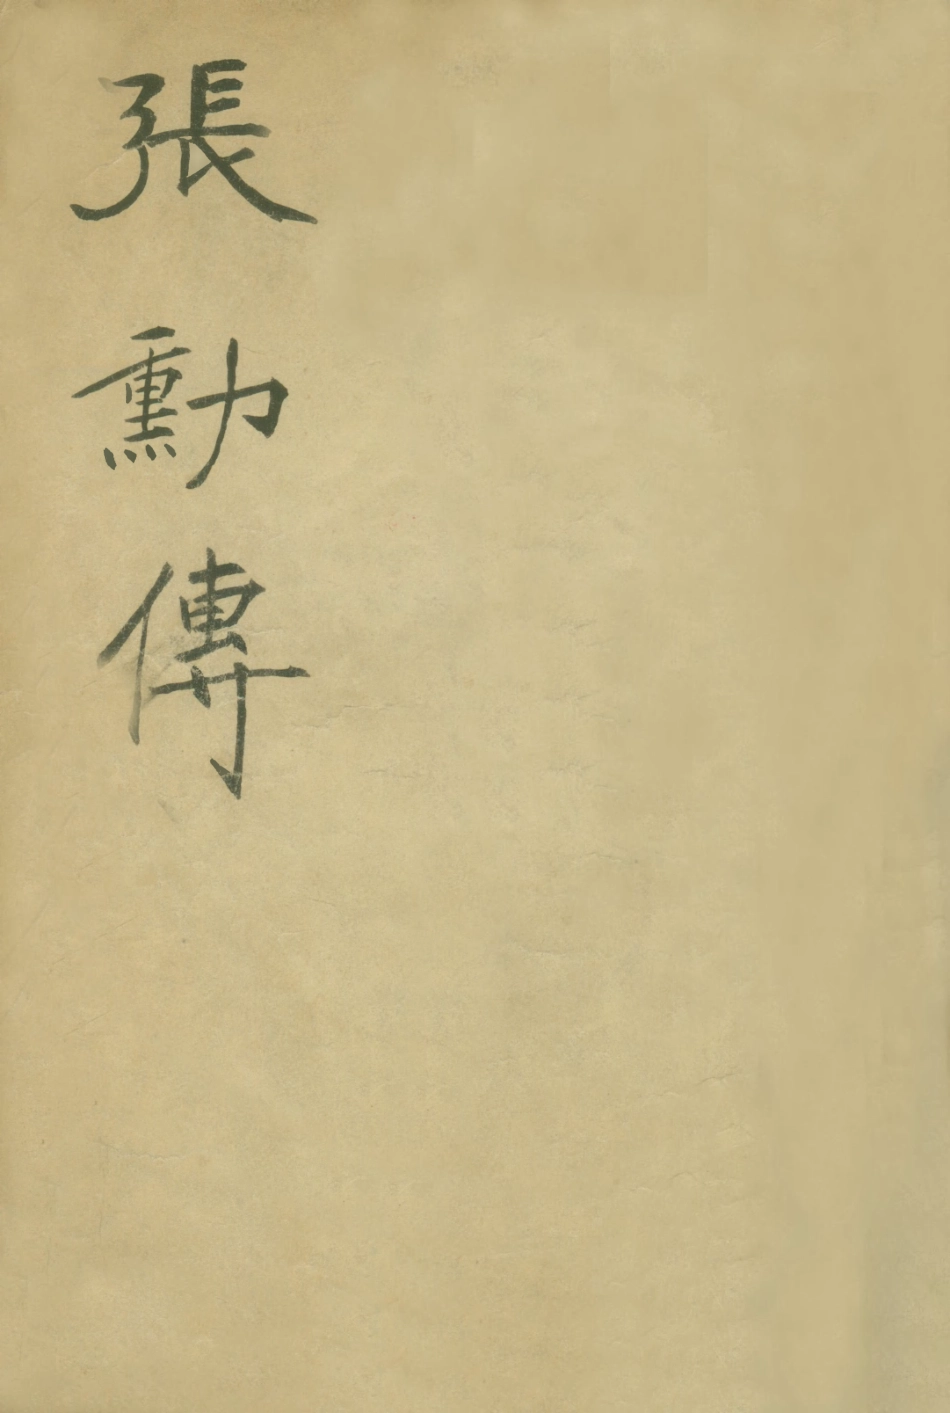 張勳傳